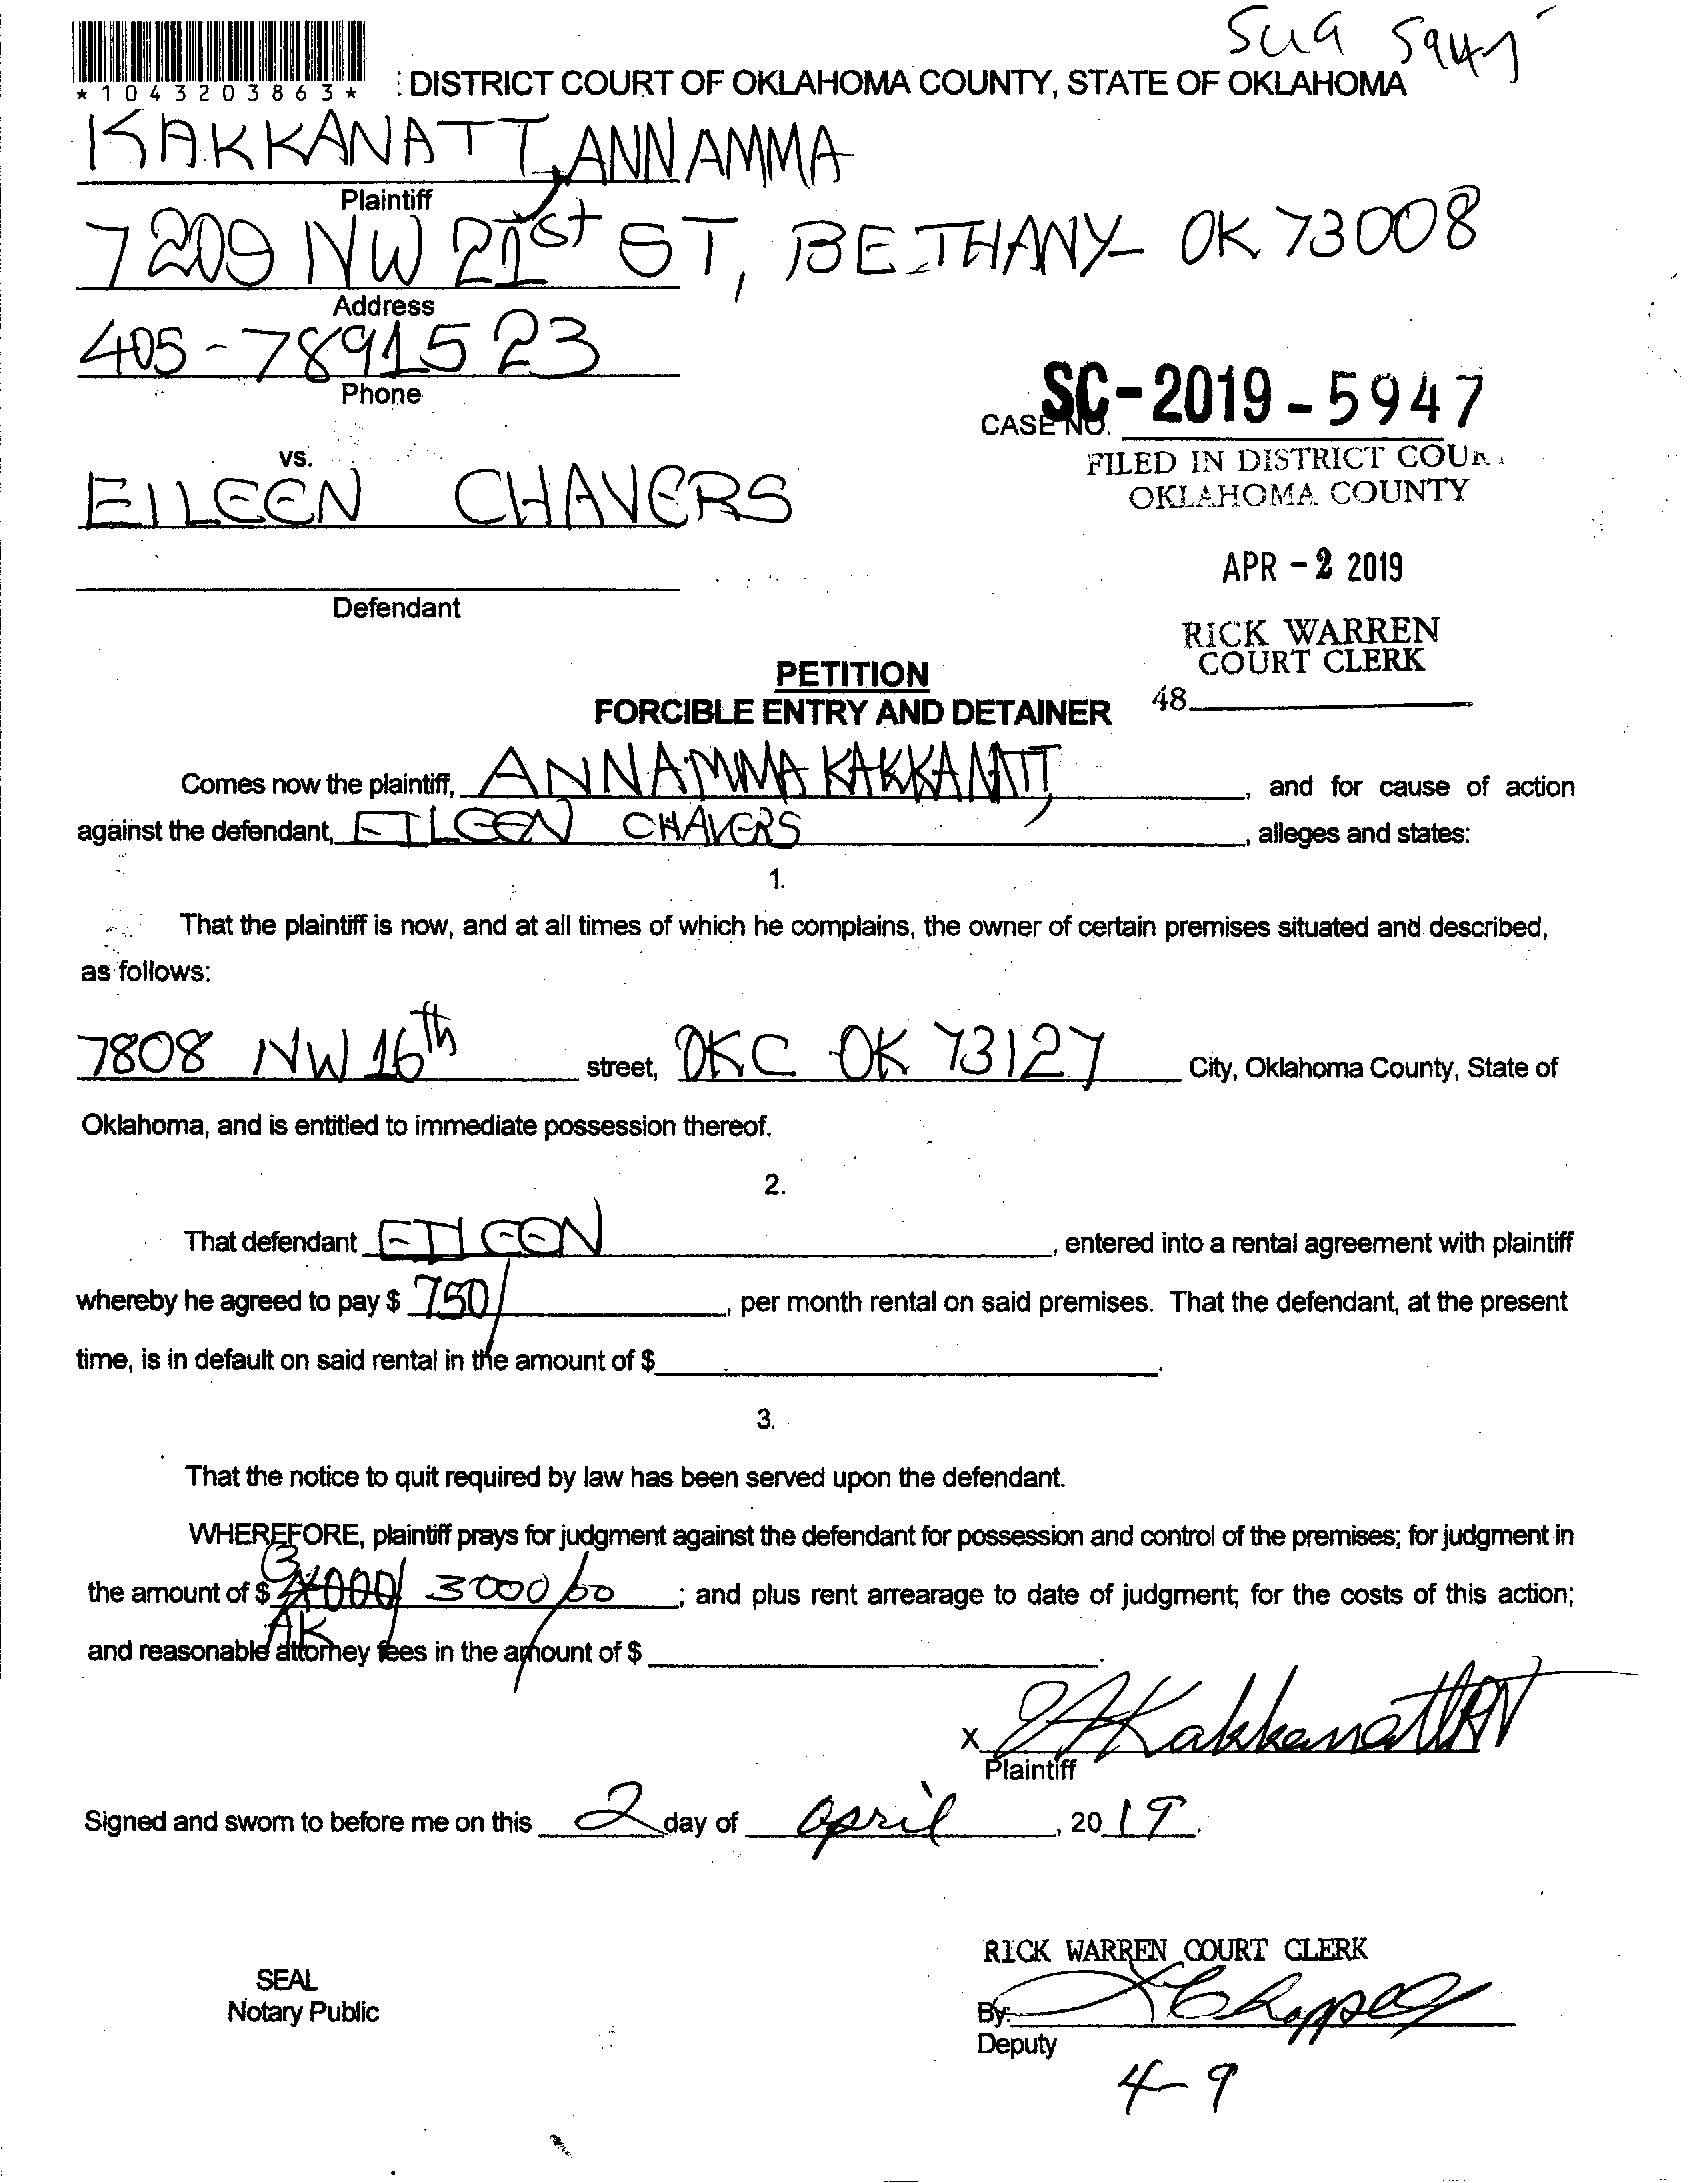 *1043203863*
Sug 5947
: DISTRICT COURT OF OKLAHOMA COUNTY, STATE OF OKLAHOMA
KAKKANATT, ANNAMMA
Plaintiff
7209 NW 21st ST, BETHANY- OK 73008
Address
405-7891523
Phone
CASE NO. SC-2019-5947
vs.
FILED IN DISTRICT COUR
EILEEN CHAVERS
OKLAHOMA COUNTY
APR - 2 2019
Defendant
RICK WARREN
COURT CLERK
48
PETITION
FORCIBLE ENTRY AND DETAINER
Comes now the plaintiff, ANNAMMA KAKKANATT, and for cause of action
against the defendant, EILEEN CHAVERS, alleges and states:
1.
That the plaintiff is now, and at all times of which he complains, the owner of certain premises situated and described,
as follows:
7808 NW 16th street, OKC OK 73127 City, Oklahoma County, State of
Oklahoma, and is entitled to immediate possession thereof.
2.
That defendant EILEEN, entered into a rental agreement with plaintiff
whereby he agreed to pay $ 750/, per month rental on said premises. That the defendant, at the present
time, is in default on said rental in the amount of $ .
3.
That the notice to quit required by law has been served upon the defendant.
WHEREFORE, plaintiff prays for judgment against the defendant for possession and control of the premises; for judgment in
the amount of $ 3000/00 ; and plus rent arrearage to date of judgment; for the costs of this action;
AK
and reasonable attorney fees in the amount of $ .
x AKakkanatt
Plaintiff
Signed and sworn to before me on this 2 day of April, 2019.
RICK WARREN COURT CLERK
SEAL
Notary Public
By:
Deputy
4-9